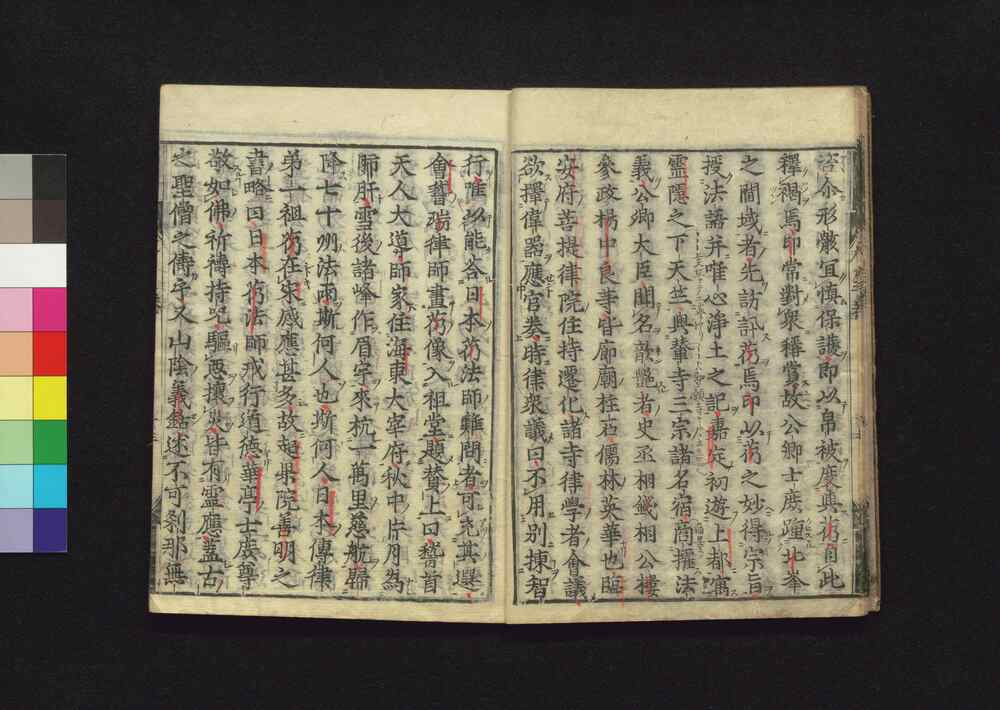 咨佘形嚴宜慎保護即以帛被麈與芿自此
釋褐馬印常對衆稱賞故公卿士庻踵北峯
之間域者先訪訊芿焉印以芿之妙得宗旨
授法語并唯心淨土之記嘉定初遊上都寓
靈隱之下天竺興聖寺三宗諸名宿商攉法
義公卿大臣聞名歆艶者史丞相錢相公樓
參政楊中良等皆廊廟柱石儒林英華也臨
安府菩提律院住持遷化諸寺律學者會議
欲擇偉器應官券時律衆議曰不用別揀智
行唯以能荅日本芿法師難問者可充其選
會稽瑞律師畫芿像入祖堂題賛上曰稽首
天人大導師家住海東大宰府秋中片月為
肺肝雪後諸峰作眉宇來杭一萬里慈航歸
降七十州法雨斯何人也斯何人日本傳律
弟一祖芿在宋感應甚多故超果院善明之
書略曰日本芿法師戒行道德華亭士庻尊
敬如佛祈禱持咒驅惡攘災皆有靈應蓋古
之聖僧之儔乎又山陰義銛述不可刹那無